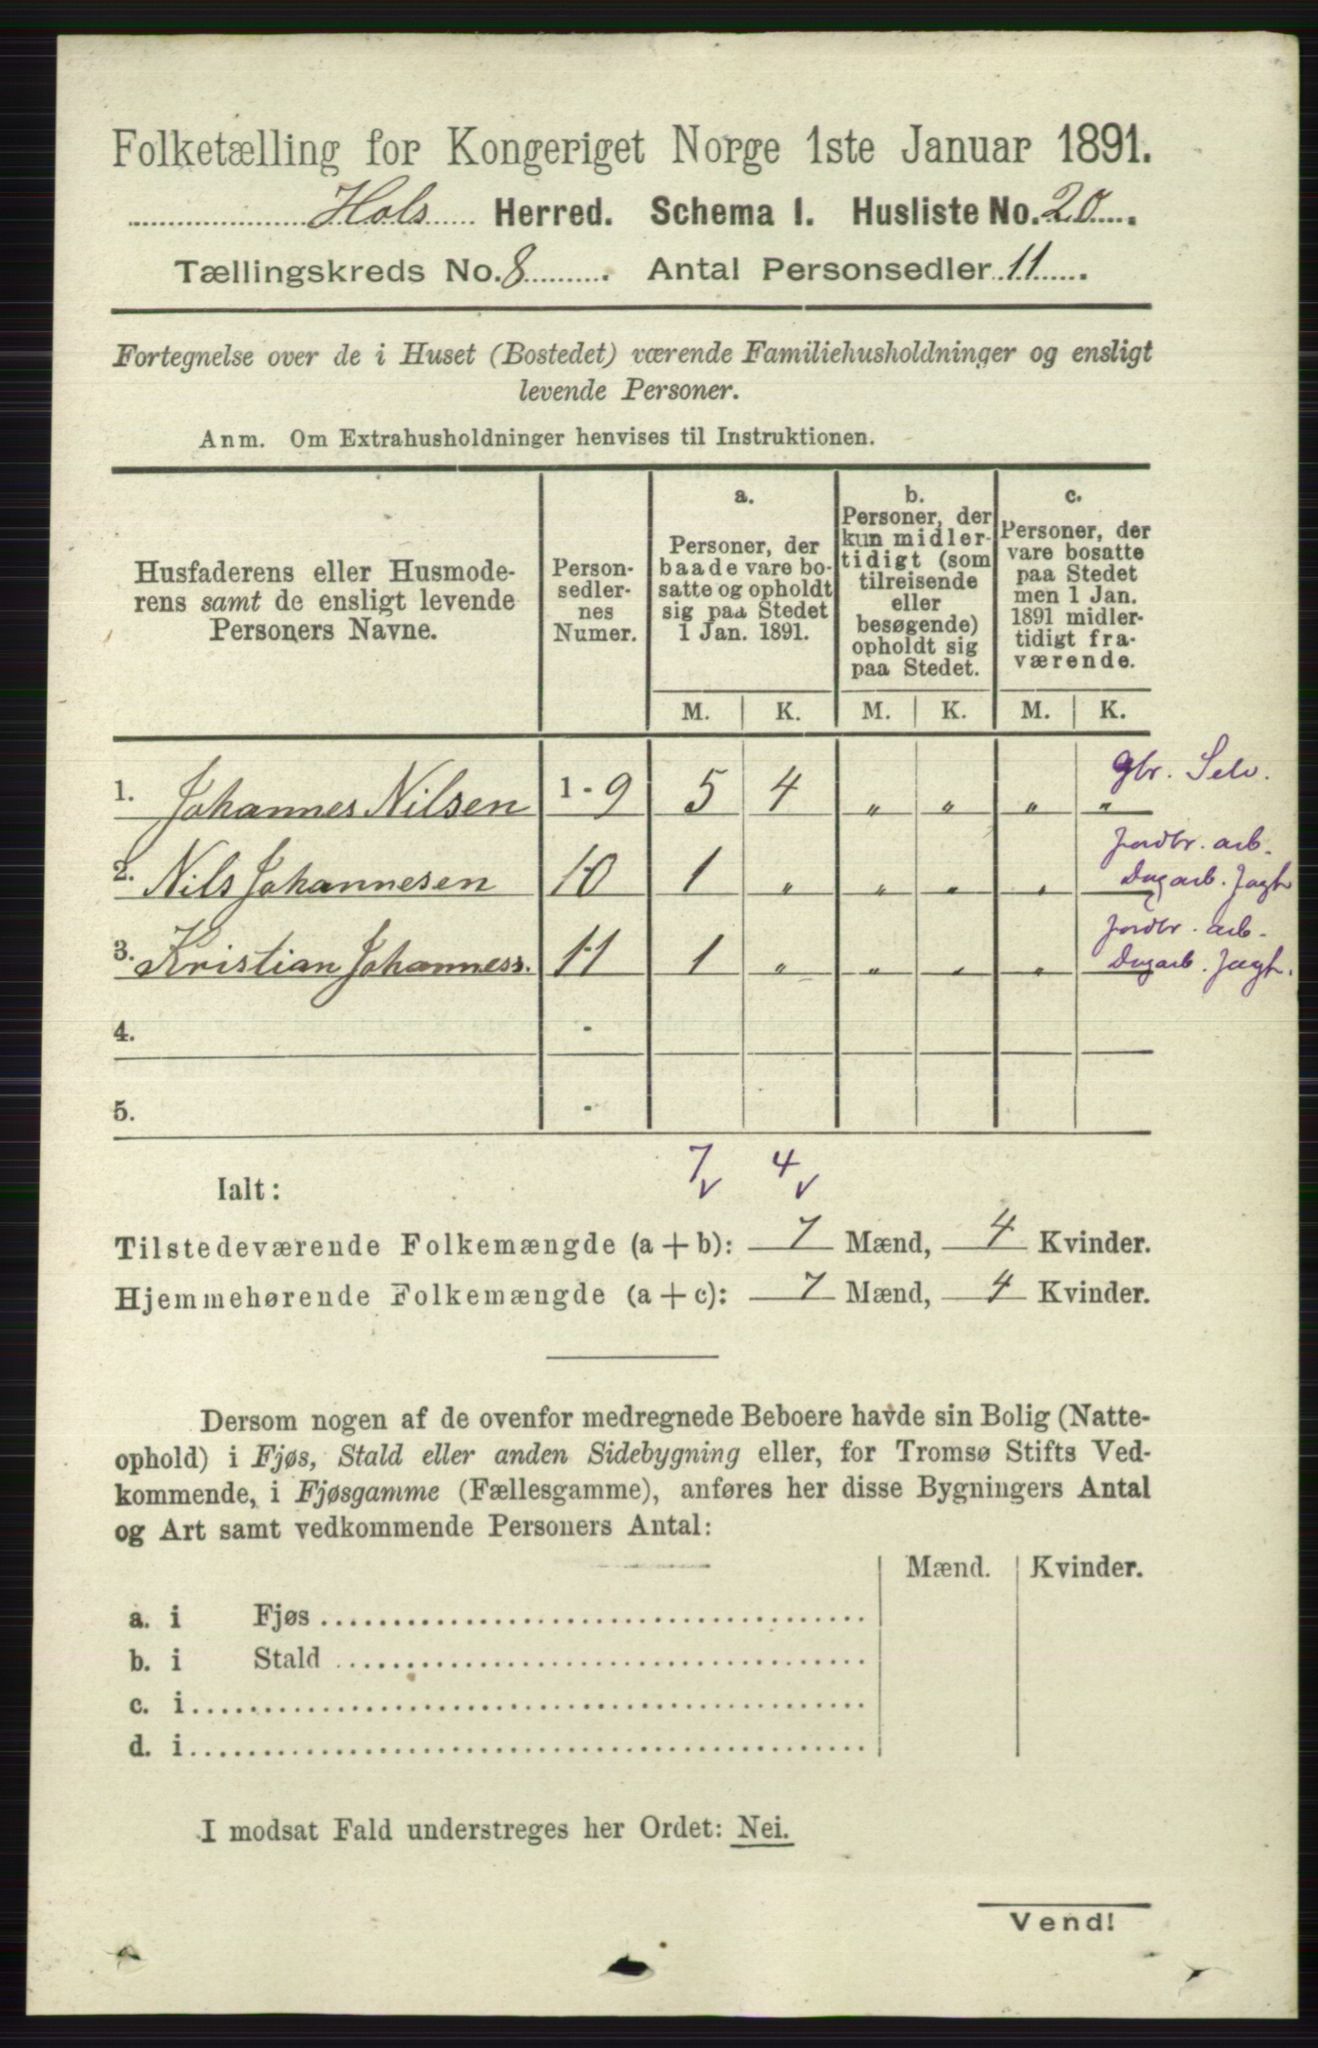 Folketælling for Kongeriget Norge 1ste Januar 1891.
Hols Herred. Schema I. Husliste No. 20.
Tællingskreds No. 8. Antal Personsedler 11.
Fortegnelse over de i Huset (Bostedet) værende Familiehusholdninger og ensligt
levende Personer.
Anm. Om Extrahusholdninger henvises til Instruktionen.
Husfaderens eller Husmode-
rens samt de ensligt levende
Personers Navne.
Person-
sedler-
nes
Numer.
a.
Personer, der
baade vare bo-
satte og opholdt
sig paa Stedet
1 Jan. 1891.
b.
Personer, der
kun midler-
tidigt (som
tilreisende
eller
besøgende)
opholdt sig
paa Stedet.
c.
Personer, der
vare bosatte
paa Stedet
men 1 Jan.
1891 midler-
tidigt fra-
værende.
M. K. M. K. M. K.
gbr. Selv.
1. Johannes Nilsen 1-9 5 4 „ „ „ „
jordbr. arb.
2. Nils Johannesen 10 1 „ „ „ „ Dagarb. Jagt
jordbr. arb.
3. Kristian Johanness. 11 1 „ „ „ „ Dagarb. Jagt.
4. -
5. -
Ialt: 7 4
Tilstedeværende Folkemængde (a + b): 7 Mænd, 4 Kvinder.
Hjemmehørende Folkemængde (a + c): 7 Mænd, 4 Kvinder.
Dersom nogen af de ovenfor medregnede Beboere havde sin Bolig (Natte-
ophold) i Fjøs, Stald eller anden Sidebygning eller, for Tromsø Stifts Ved-
kommende, i Fjøsgamme (Fællesgamme), anføres her disse Bygningers Antal
og Art samt vedkommende Personers Antal:
Mænd. Kvinder.
a. i Fjøs
b. i Stald
c. i
d. i
I modsat Fald understreges her Ordet: Nei.
Vend!